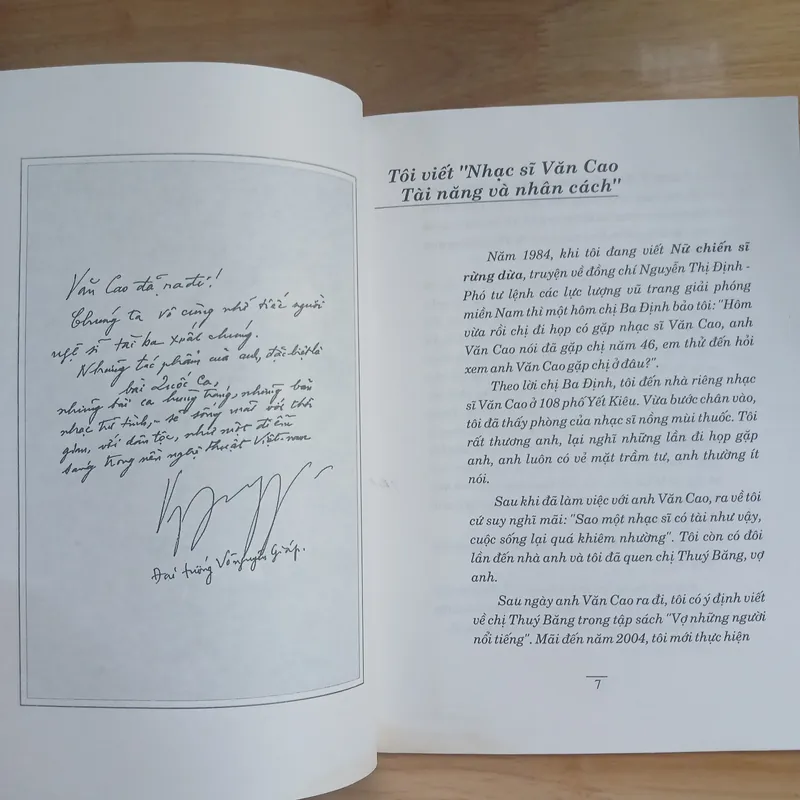 Văn Cao đã ra đi!
Chúng ta vô cùng nhớ tiếc người
nghệ sĩ tài ba xuất chúng.
Những tác phẩm của anh, đặc biệt là
bài Quốc Ca,
những bài ca hùng tráng, những bản
nhạc trữ tình, sẽ sống mãi với thời
gian, với dân tộc, như một điểm
sáng trong nền nghệ thuật Việt-nam
Đại tướng Võ Nguyên Giáp.
Tôi viết "Nhạc sĩ Văn Cao
Tài năng và nhân cách"
Năm 1984, khi tôi đang viết Nữ chiến sĩ
rừng dừa, truyện về đồng chí Nguyễn Thị Định -
Phó tư lệnh các lực lượng vũ trang giải phóng
miền Nam thì một hôm chị Ba Định bảo tôi: "Hôm
vừa rồi chị đi họp có gặp nhạc sĩ Văn Cao, anh
Văn Cao nói đã gặp chị năm 46, em thử đến hỏi
xem anh Văn Cao gặp chị ở đâu?".
Theo lời chị Ba Định, tôi đến nhà riêng nhạc
sĩ Văn Cao ở 108 phố Yết Kiêu. Vừa bước chân vào,
tôi đã thấy phòng của nhạc sĩ nồng mùi thuốc. Tôi
rất thương anh, lại nghĩ những lần đi họp gặp
anh, anh luôn có vẻ mặt trầm tư, anh thường ít
nói.
Sau khi đã làm việc với anh Văn Cao, ra về tôi
cứ suy nghĩ mãi: "Sao một nhạc sĩ có tài như vậy,
cuộc sống lại quá khiêm nhường". Tôi còn có đôi
lần đến nhà anh và tôi đã quen chị Thuý Băng, vợ
anh.
Sau ngày anh Văn Cao ra đi, tôi có ý định viết
về chị Thuý Băng trong tập sách "Vợ những người
nổi tiếng". Mãi đến năm 2004, tôi mới thực hiện
7